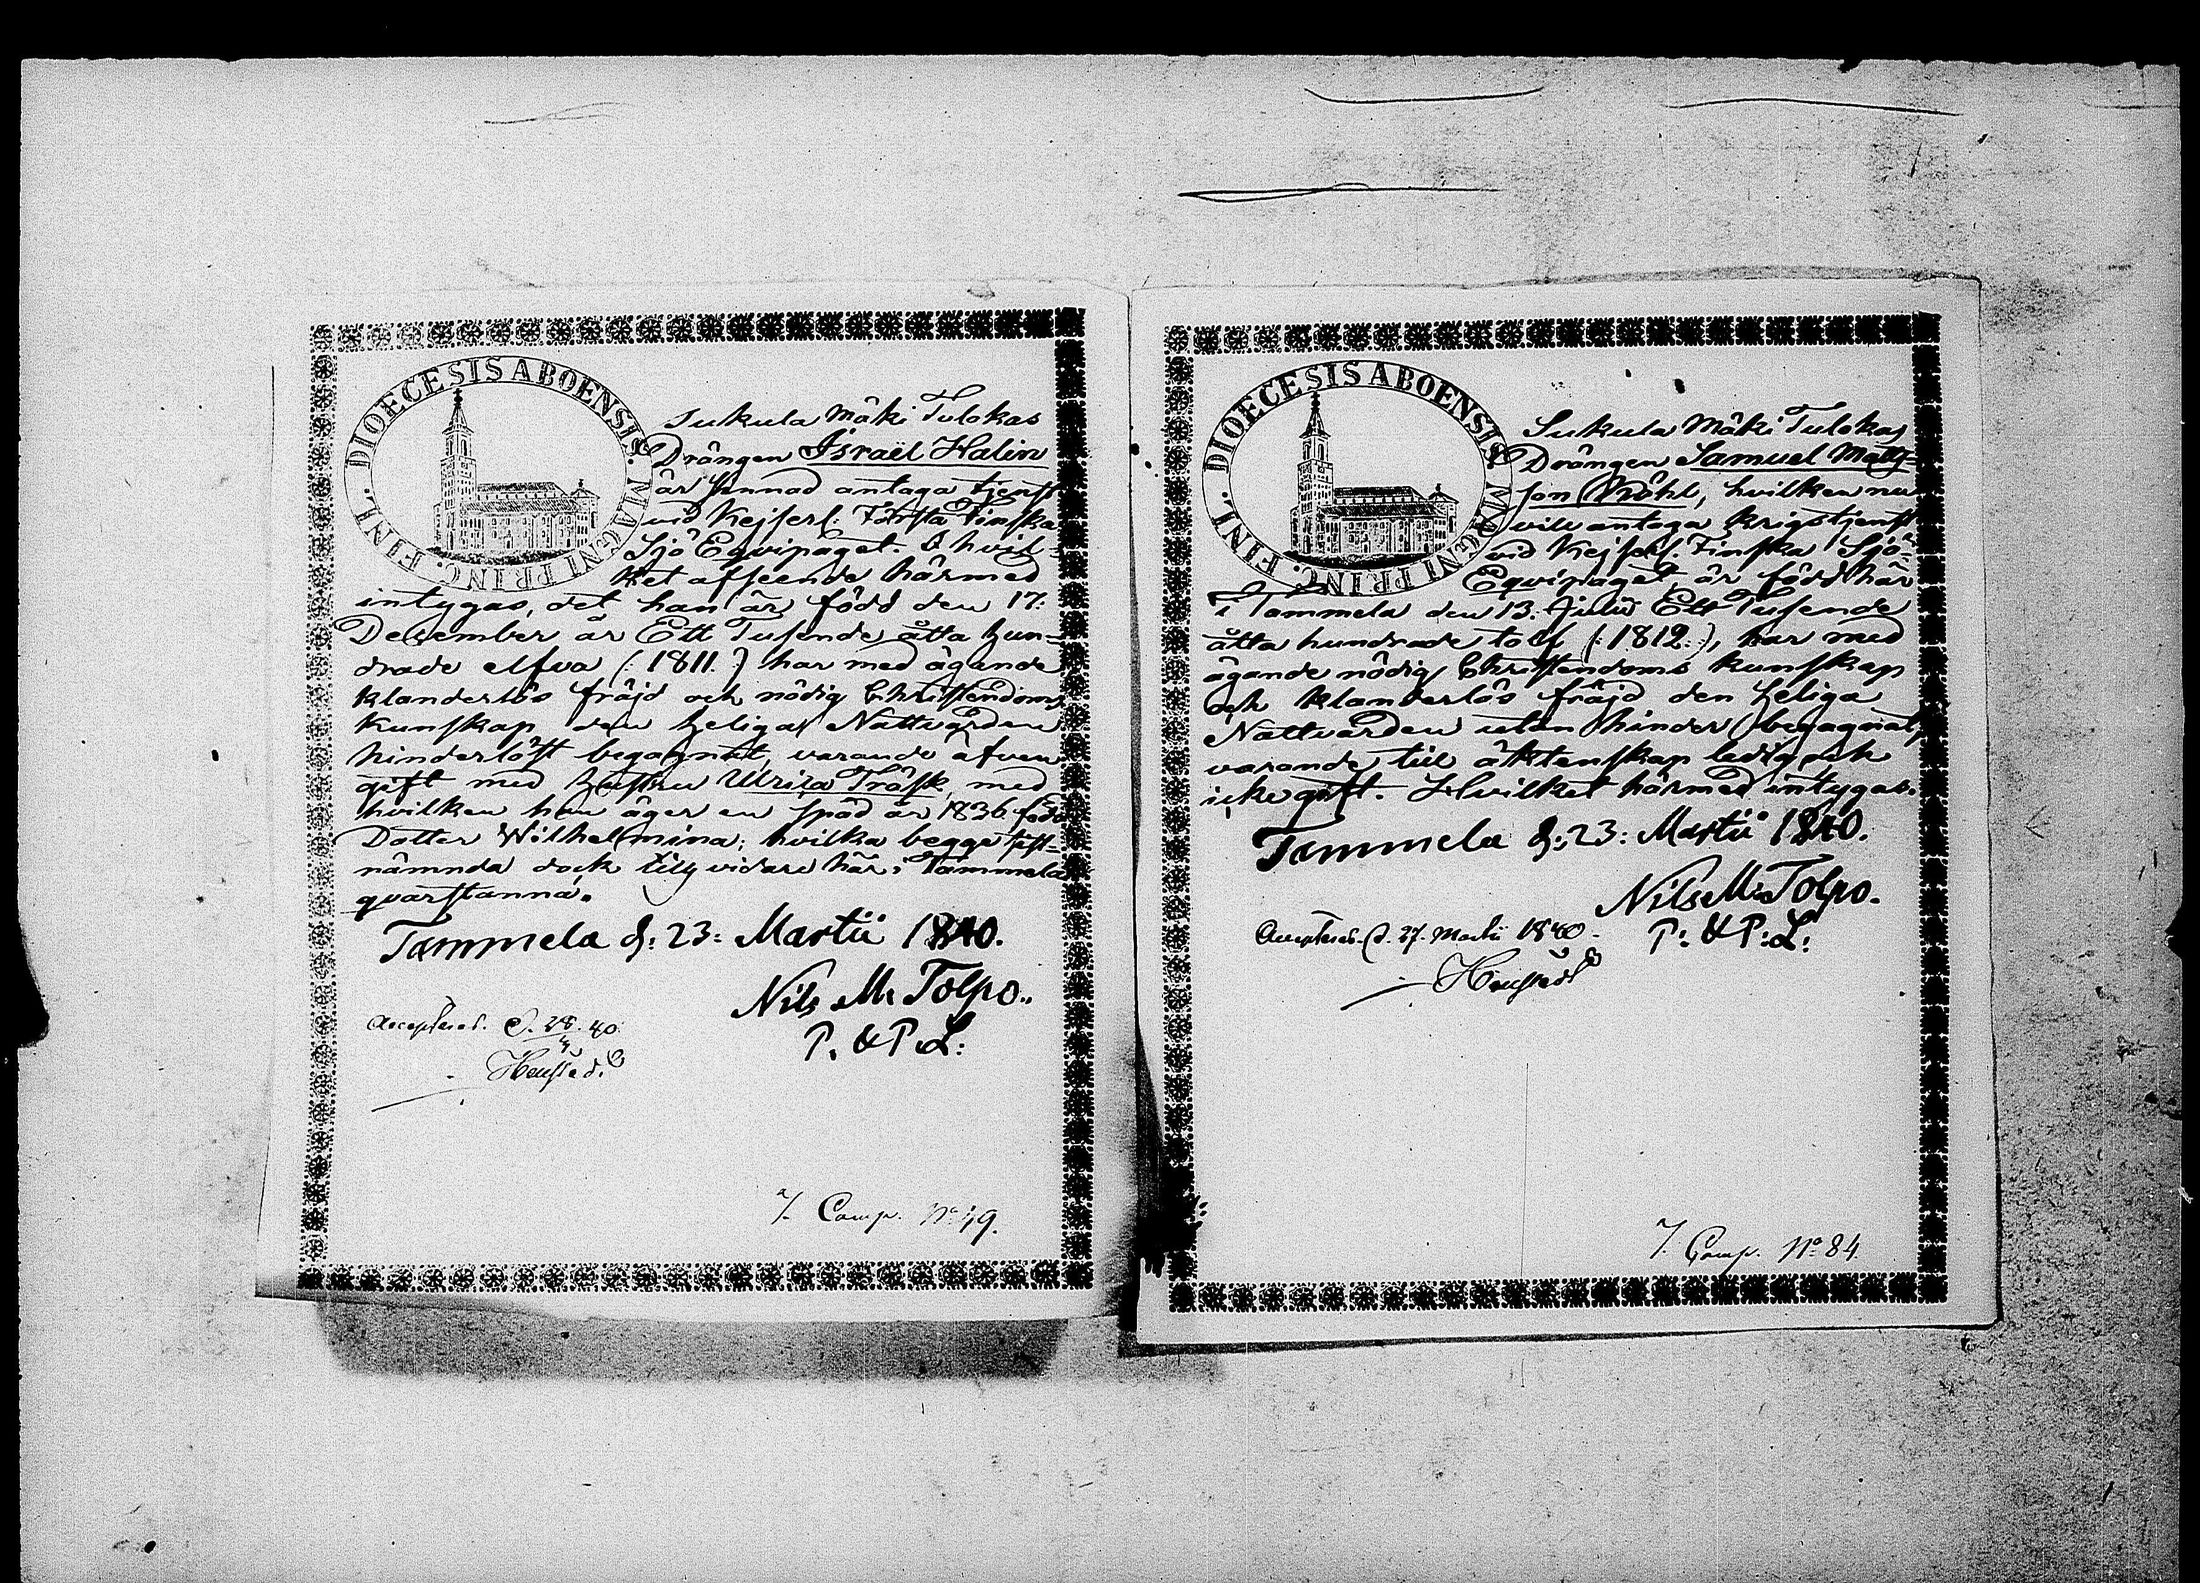 DIOECESIS ABOENSIS. MAGNI PRINC. FINL.
Sukula Mäki Tulokas
Drängen Israël Halin
är sinnad antaga tjenst
vid Kejserl. Första Finska
Sjö Eqvipaget. I hvil-
ket afseende härmed
intygas, det han är född den 17:
December år Ett Tusende åtta hun-
drade elfva (: 1811. :) har med ägande
klanderlös fräjd och nödig Christendoms
kunskap den heliga Nattvarden
hinderlöst begagnat, varande äfven
gift med hustru Ulrica Träsk, med
hvilken han äger en späd år 1836 född
Dotter Wilhelmina; hvilka begge sist-
nämnda dock tills vidare här i Tammela
qvarstanna.
Tammela d. 23: Martii 1840.
Nils M. Tolpo.
P. & P. L:
Accepteras. d. 28. 40.
1/. Comp. No 49.
DIOECESIS ABOENSIS. MAGNI PRINC. FINL.
Sukula Mäki Tulokas
Drängen Samuel Matts-
son, hvilken nu
vill antaga krigstjenst
vid Kejserl. Finska Sjö-
Eqvipaget, är född här
i Tammela den 13. Julii Ett Tusende
åtta hundrade tolf (: 1812. :), har med
ägande nödig Christendoms kunskap
och klanderlös fräjd den heliga
Nattvarden utan hinder begagnat,
varande till äktenskap ledig och
icke gift. Hvilket härmed intygas.
Tammela d. 23: Martii 1840.
Nils M. Tolpo.
P: & P: L:
Accepteras. d. 27. Martii 1840.
1/. Comp. No 84